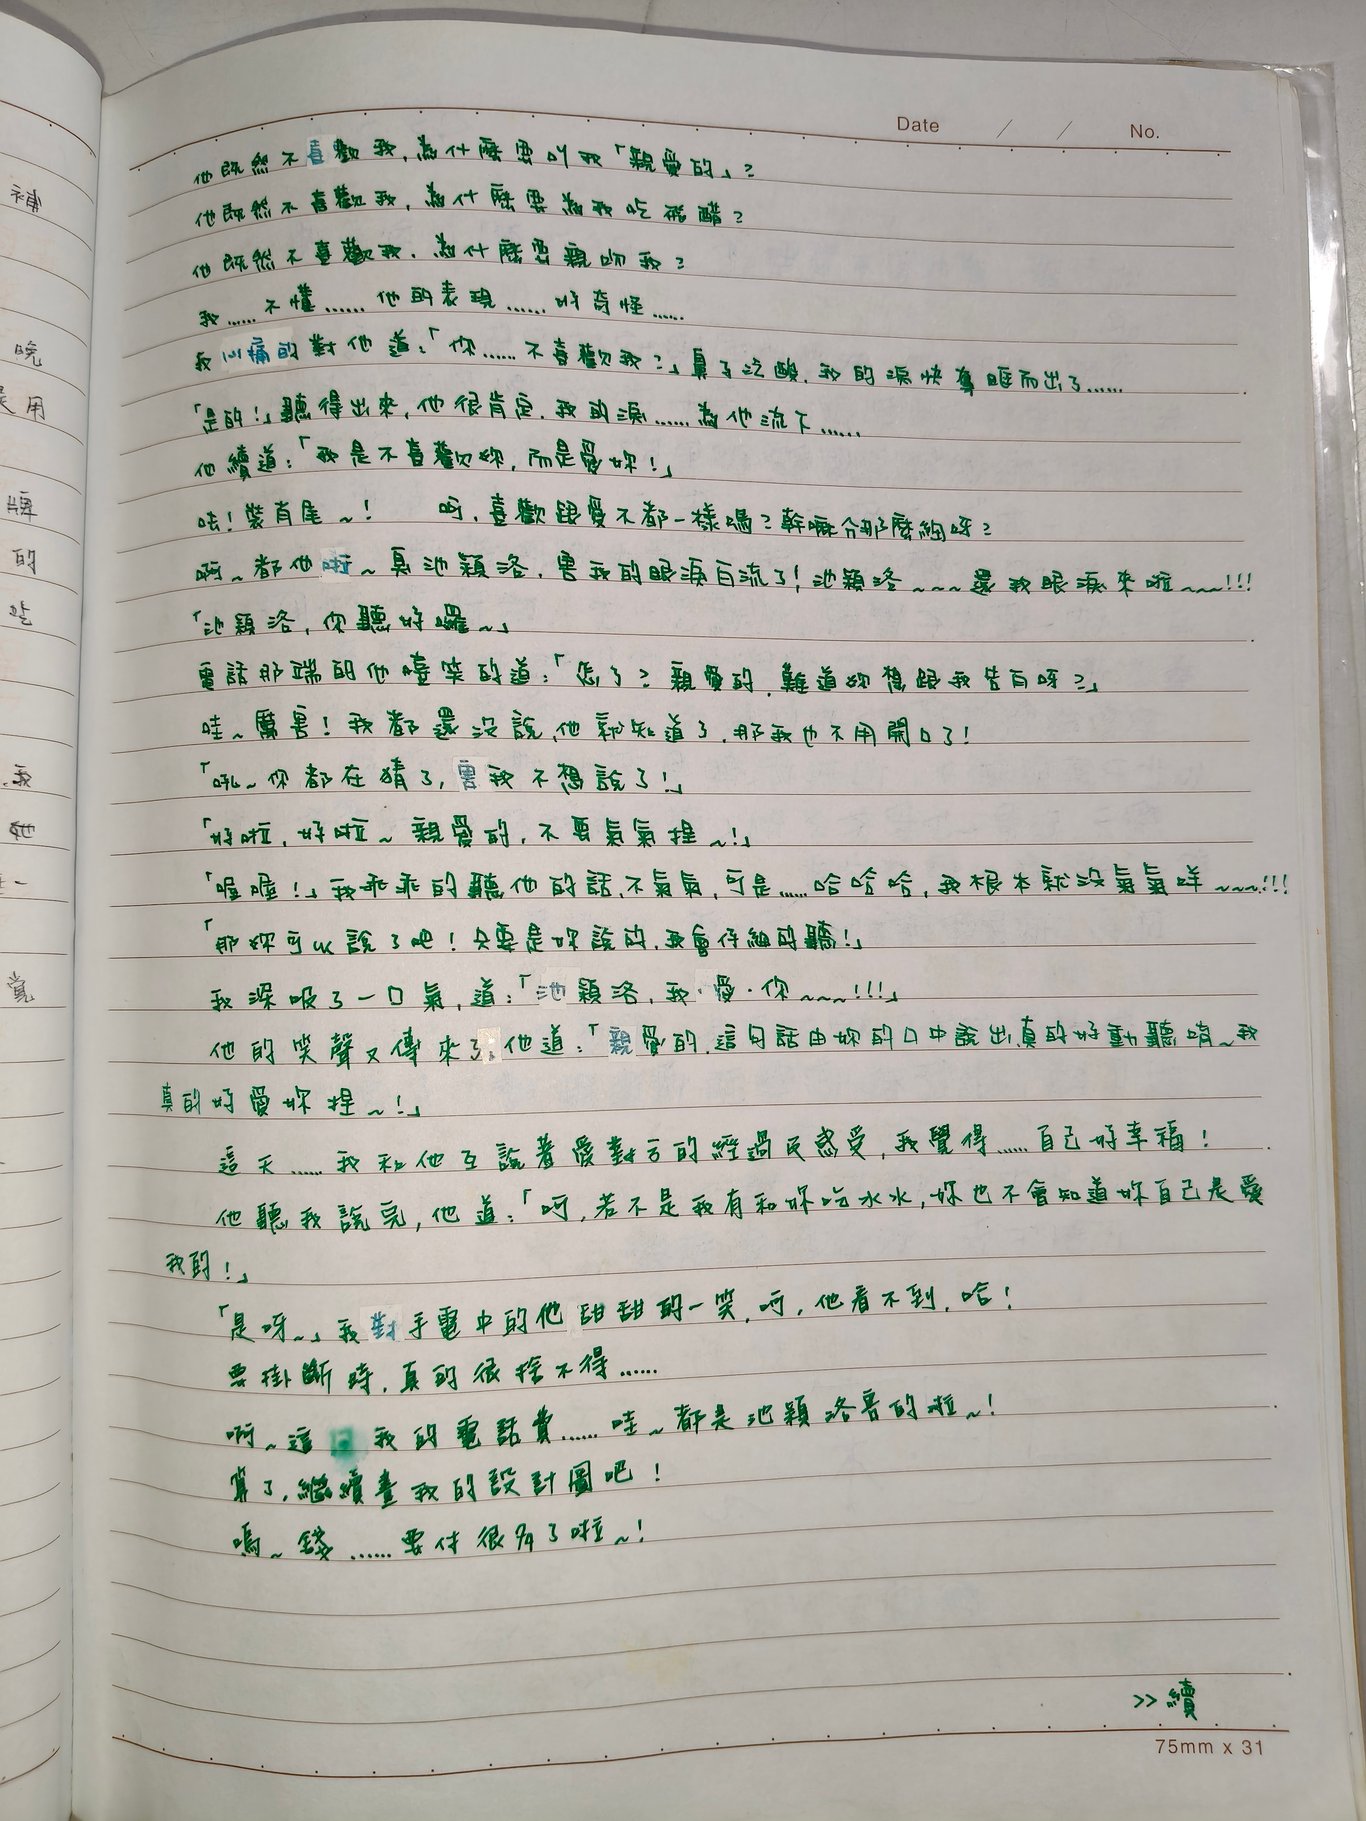 補
晚
是用
牌
的
吃
我
她
覺
Date / / No.
他既然不喜歡我，為什麼要叫我「親愛的」？
他既然不喜歡我，為什麼要為我吃飛醋？
他既然不喜歡我，為什麼要親吻我？
我……不懂……他的表現……好奇怪……
我心痛的對他道：「你……不喜歡我？」鼻子泛酸，我的淚快奪眶而出了……
「是的！」聽得出來，他很肯定，我的淚……為他流下……
他續道：「我是不喜歡妳，而是愛妳！」
呿！裝肖尾~！　呵，喜歡跟愛不都一樣嗎？幹嘛分那麼細呀？
啊~都他啦~臭池穎洛，害我的眼淚白流了！池穎洛~~~還我眼淚來啦~~~!!!
「池穎洛，你聽好囉~」
電話那端的他嘻笑的道：「怎了？親愛的，難道妳想跟我告白呀？」
哇~厲害！我都還沒說，他就知道了，那我也不用開口了！
「吼~你都在猜了，害我不想說了！」
「好啦，好啦~親愛的，不要氣氣捏~！」
「喔喔！」我乖乖的聽他的話，不氣氣，可是……哈哈哈，我根本就沒氣氣咩~~~!!!
「那妳可以說了吧！只要是妳說的，我會仔細的聽！」
我深吸了一口氣，道：「池穎洛，我·愛·你~~~!!!」
他的笑聲又傳來了，他道：「親愛的，這句話由妳的口中說出，真的好動聽唷~我
真的好愛妳捏~！」
這天……我和他互說著愛對方的經過及感受，我覺得……自己好幸福！
他聽我說完，他道：「呵，若不是我有和妳吃水水，妳也不會知道妳自己是愛
我的！」
「是呀~」我對手電中的他甜甜的一笑，呵，他看不到，哈！
要掛斷時，真的很捨不得……
啊~這日我的電話費……哇~都是池穎洛害的啦~！
算了，繼續畫我的設計圖吧！
嗚~錢……要付很多了啦~！
>> 續
75mm x 31